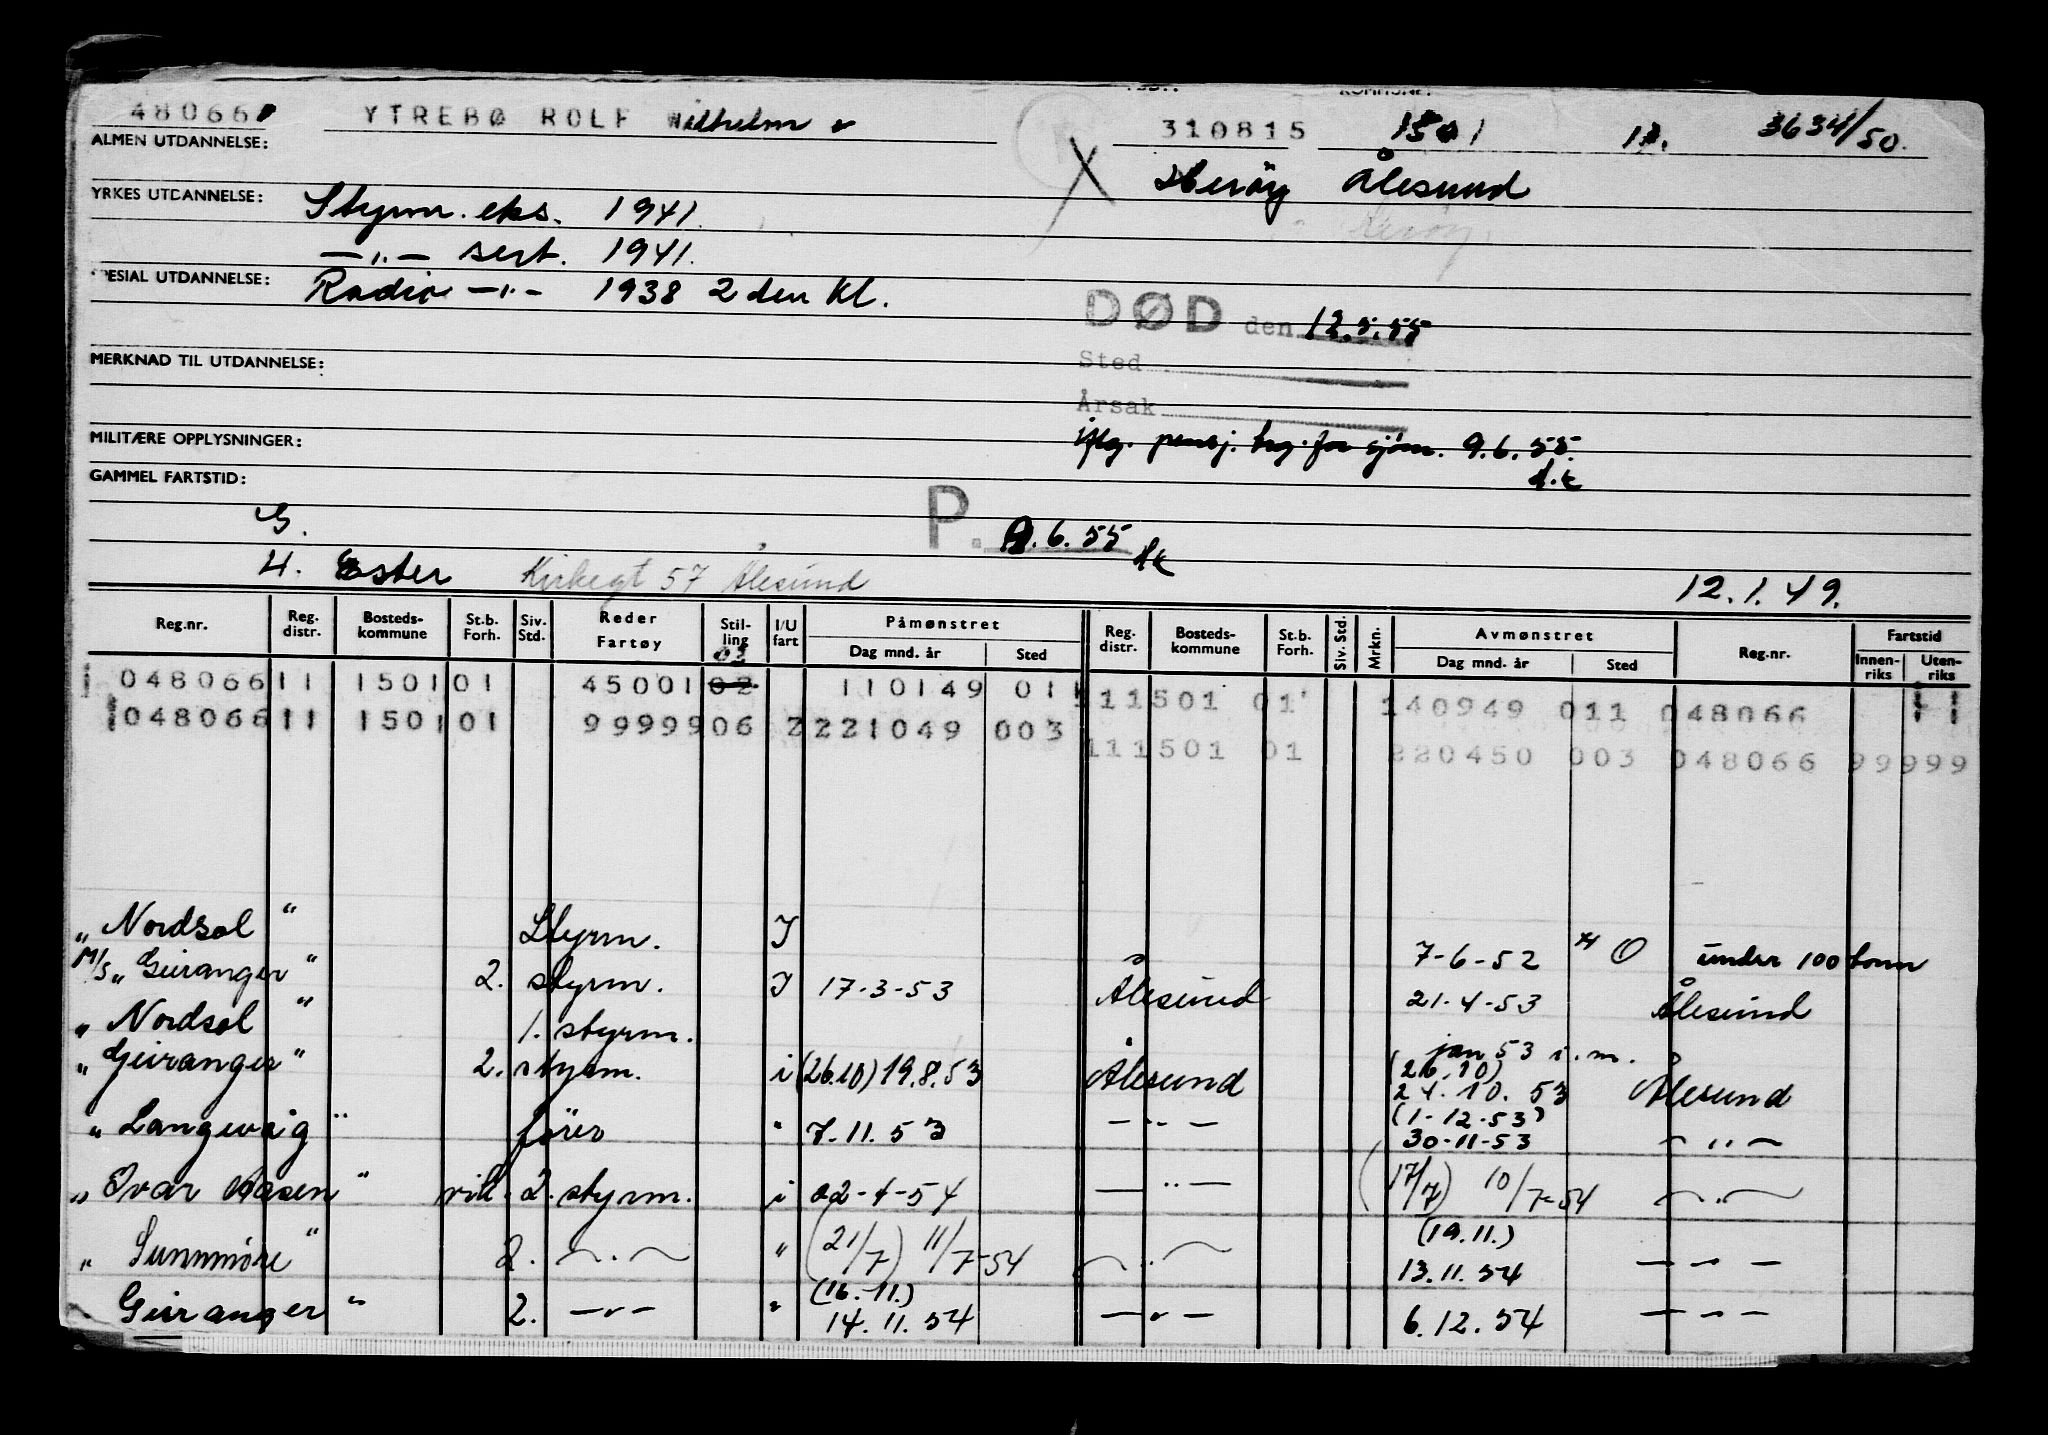 48066 YTREBØ ROLF Wilhelm 310815 1501 11. 3634/50.
ALMEN UTDANNELSE: Heröy Ålesund
YRKES UTDANNELSE: Styrm. eks. 1941
—"— sert. 1941.
SPESIAL UTDANNELSE: Radio —"— 1938 2den kl.
DØD den 12.5.55
Sted
MERKNAD TIL UTDANNELSE:
Årsak
MILITÆRE OPPLYSNINGER: iflg. pensj. trg. for sjöm. 9.6.55.
GAMMEL FARTSTID:
G. P. 9.6.55
H. Ester Kirkegt 57 Ålesund 12.1.49.
Reg.nr. Reg. distr. Bosteds-kommune St.b. Forh. Siv. Std. Reder Fartøy Stil-ling I/U fart Påmønstret Dag mnd. år Sted Reg. distr. Bosteds-kommune St.b. Forh. Siv. Std. Mrkn. Avmønstret Dag mnd. år Sted Reg.nr. Fartstid Innen-riks Uten-riks
02
048066 11 1501 01 45001 02 110149 011 11 1501 01 140949 011 048066
048066 11 1501 01 99999 06 2 221049 003 11 1501 01 220450 003 048066 99999
"Nordsol" Styrm. I 7-6-52 O under 100 tonn
M/S "Geiranger" 2. styrm. I 17-3-53 Ålesund 21-4-53 Ålesund
"Nordsol" 1. styrm. jan 53 i.m.
"Geiranger" 2. styrm. i (26.10) 19.8.53 Ålesund (26.10) 24.10.53 Ålesund
"Langevåg" förer " 7.11.53 —"— (1-12-53) 30-11-53 —"—
"Ivar Aasen" vik. 2. styrm. i 02-4-54 —"— (17/7) 10/7-54 —"—
"Sunnmöre" 2. —"— " (21/7) 11/7-54 —"— (19.11.) 13.11.54 —"—
Geiranger" 2. —"— " (16.-11.) 14.11.54 —"— 6.12.54 —"—